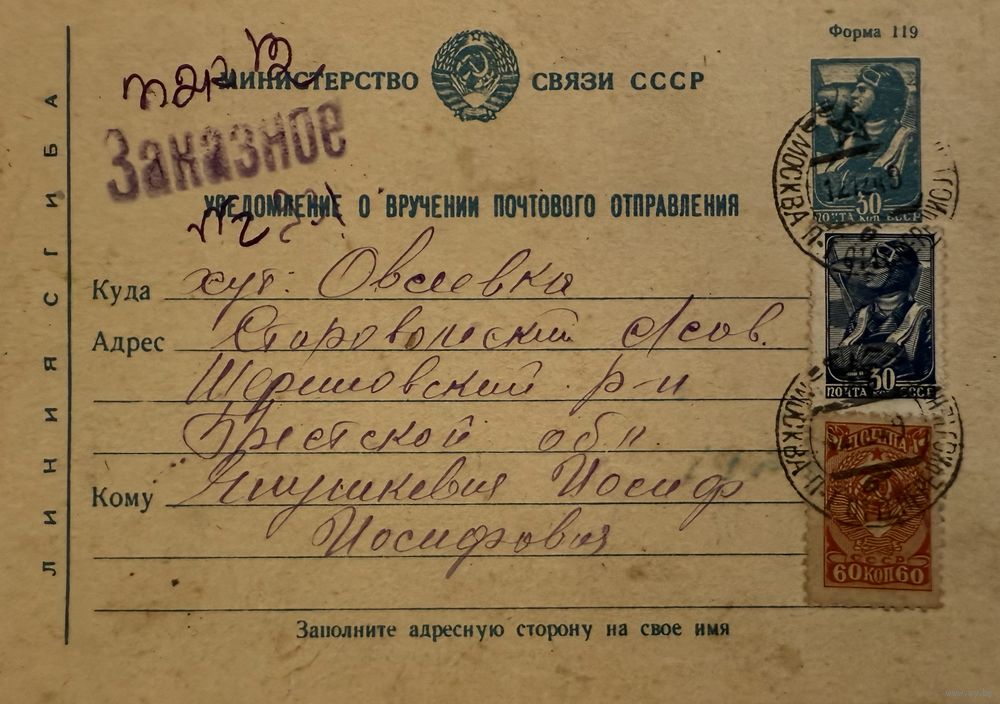 Форма 119
МИНИСТЕРСТВО СВЯЗИ СССР
Заказное
УВЕДОМЛЕНИЕ О ВРУЧЕНИИ ПОЧТОВОГО ОТПРАВЛЕНИЯ
Куда хут. Овсеевка
Адрес Старовольский с/сов.
Шерешовский р-н
Брестской обл.
Кому Янушкевич Иосиф
Иосифович
Заполните адресную сторону на свое имя
ЛИНИЯ СГИБА
30
ПОЧТА коп СССР
МОСКВА
30
ПОЧТА коп СССР
МОСКВА
СССР
60 КОП 60